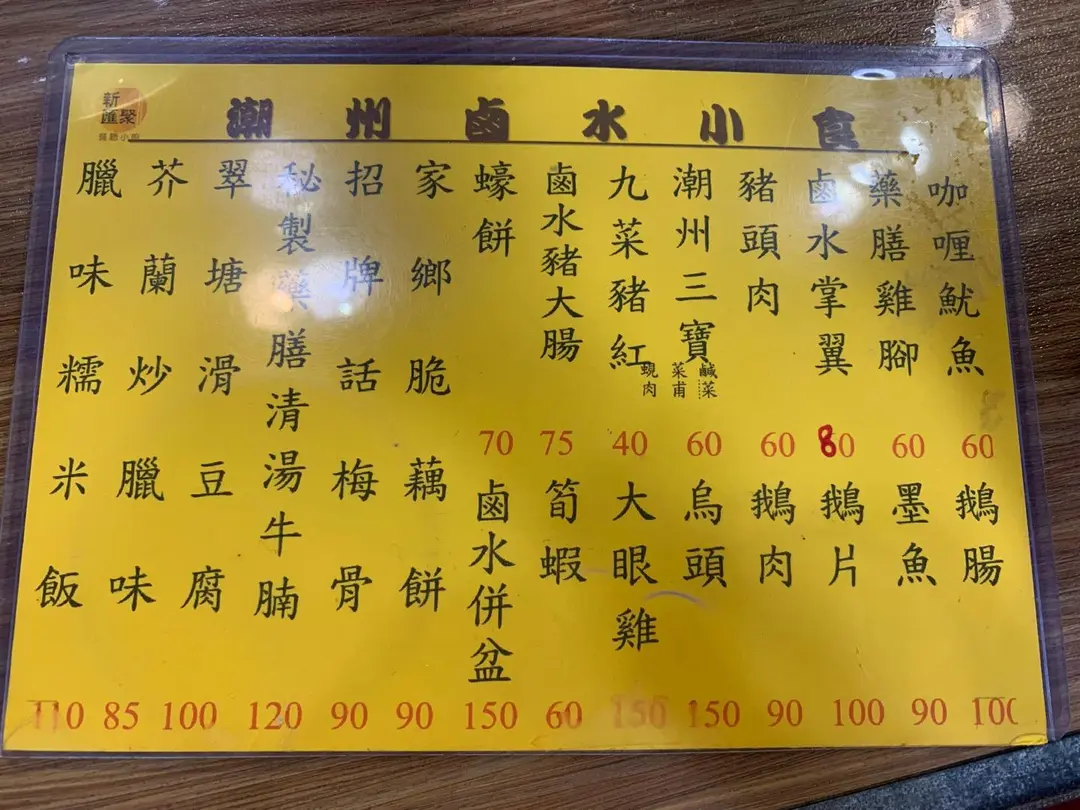 新
匯聚
潮州鹵水小食
咖喱魷魚
60
藥膳雞腳
60
鹵水掌翼
80
豬頭肉
60
潮州三寶
鹹菜
菜甫
蜆肉
60
九菜豬紅
40
鹵水豬大腸
75
蠔餅
70
鵝腸
100
墨魚
90
鵝片
100
鵝肉
90
烏頭
150
大眼雞
150
筍蝦
60
鹵水併盆
150
家鄉脆藕餅
90
招牌話梅骨
90
秘製藥膳清湯牛腩
120
翠塘滑豆腐
100
芥蘭炒臘味
85
臘味糯米飯
110